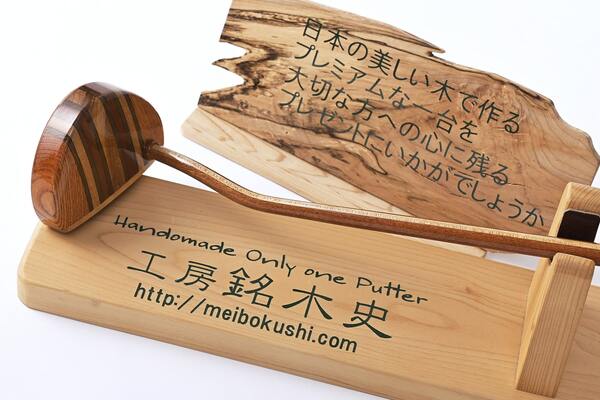 日本の美しい木で作る
プレミアムな一台を
大切な方への心に残る
プレゼントにいかがでしょうか
Handomade Only one Putter
工房銘木史
http://meibokushi.com